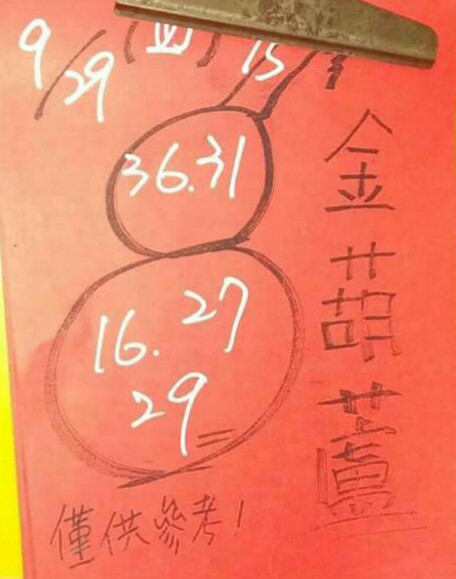 9/29(四) 15
36.31
16.27
29
金葫蘆
僅供參考!